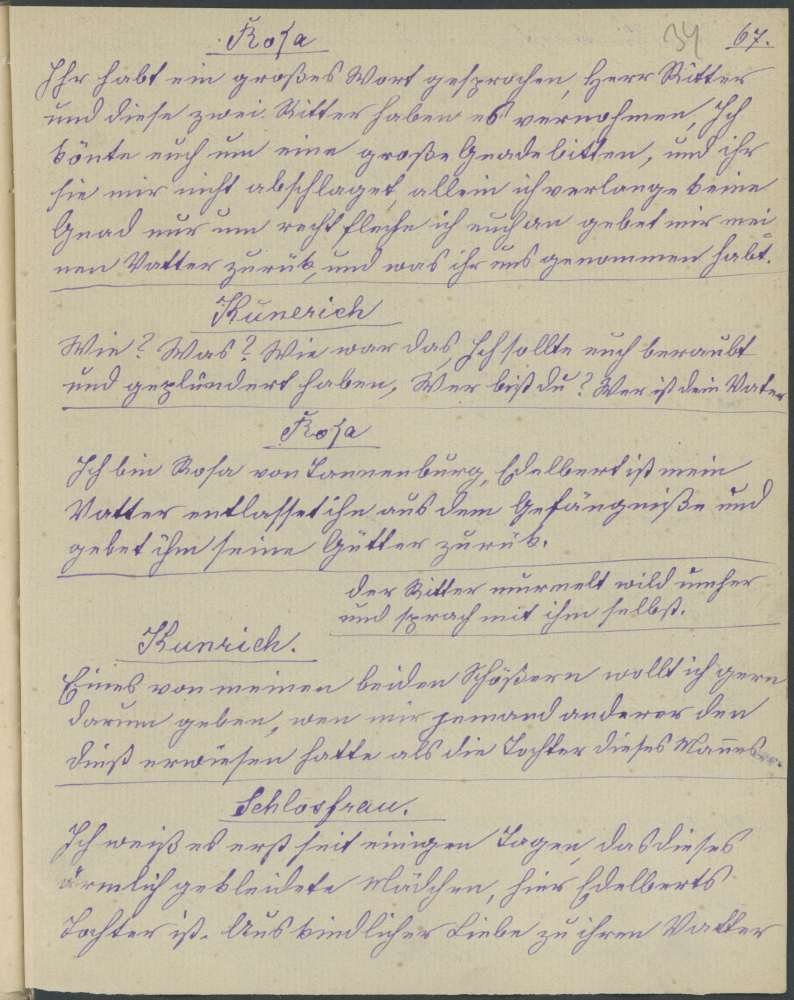 Rosa
34 67.
Ihr habt ein großes Wort gesprochen, Herr Ritter
und diese zwei Ritter haben es vernohmen, Ich
könte euch um eine große Gnade bitten, und ihr
sie mir nicht abschlaget, allein ich verlange keine
Gnad nur um recht flehe ich euch an gebet mir mei=
nen Vatter zurük, und was ihr uns genommen habt.
Kunerich
Wie? Was? Wie war das, Ich sollte euch beraubt
und geplündert haben, Wer bist du? Wer ist dein Vater
Rosa
Ich bin Rosa von Tannenburg, Edelbert ist mein
Vatter entlasset ihn aus dem Gefängniße und
gebet ihm seine Gütter zurük.
der Ritter murmelt wild umher
und sprach mit ihm selbst.
Kunrich.
Eines von meinen beiden Schößern wollt ich gern
darum geben, wen mir jemand anderer den
dinst erwiesen hatte als die Tochter dieses Mannes
Schlosfrau.
Ich weiß es erst seit einigen Tagen, das dieses
ärmlich gekleidete Mädchen, hier Edelberts
Tochter ist. Aus kindlicher Liebe zu ihren Vatter